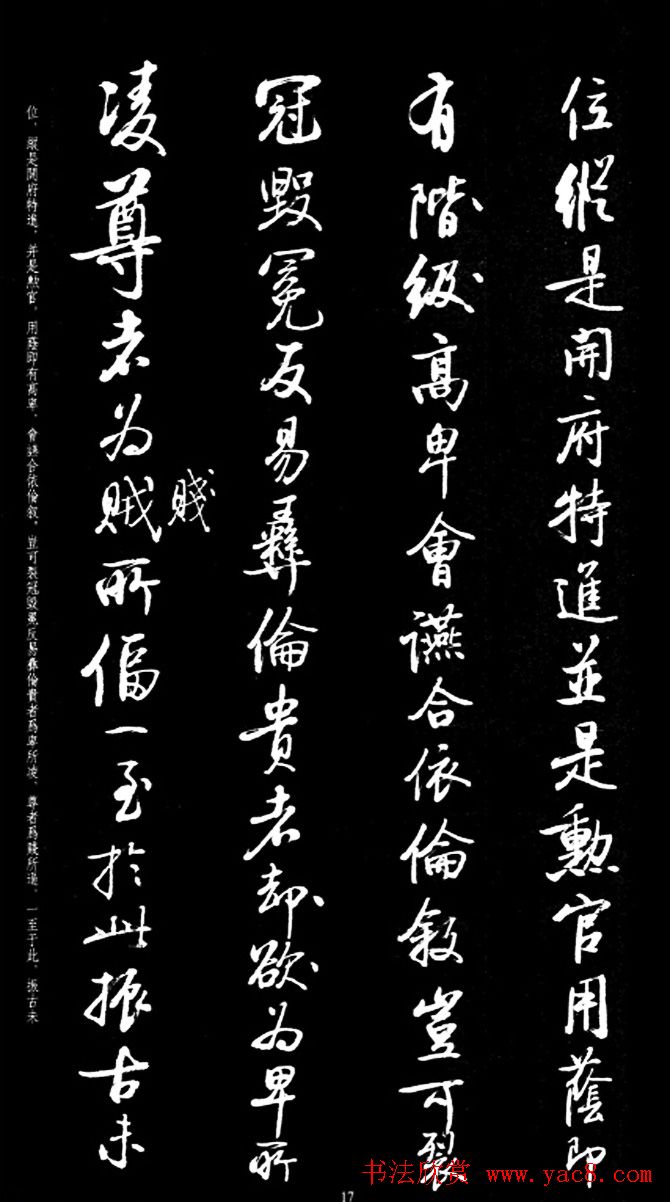 位縱是開府特進並是勲官用蔭即
有階級高卑會讌合依倫叙豈可裂
冠毀冕反易彝倫貴者却欲为卑所
凌尊者为賊所偪一至於此振古未
賤
位，縱是開府特進，并是勲官，用蔭即有高卑，會讌合依倫叙，豈可裂冠毀冕反易彝倫貴者爲卑所凌，尊者爲賤所逼，一至于此，振古未
17
书法欣赏 www.yac8.com